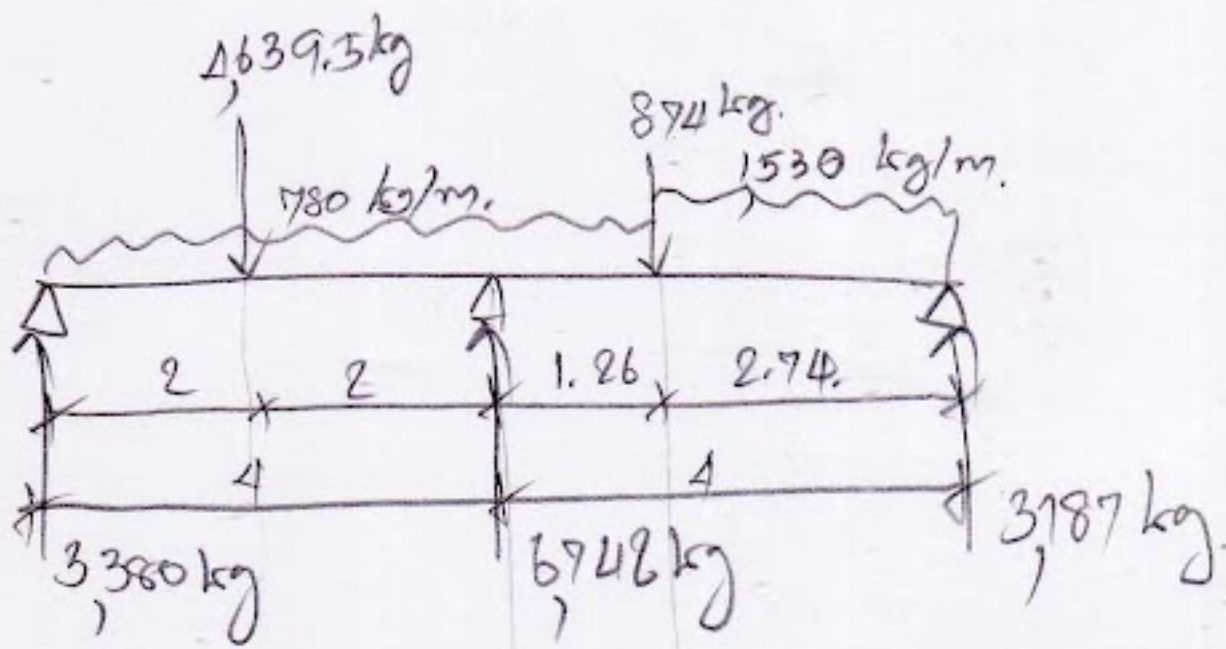 4,639.5 kg
874 kg.
780 kg/m.
1530 kg/m.
2 2 1.26 2.74.
4 4
3,380 kg 6,742 kg 3,187 kg.